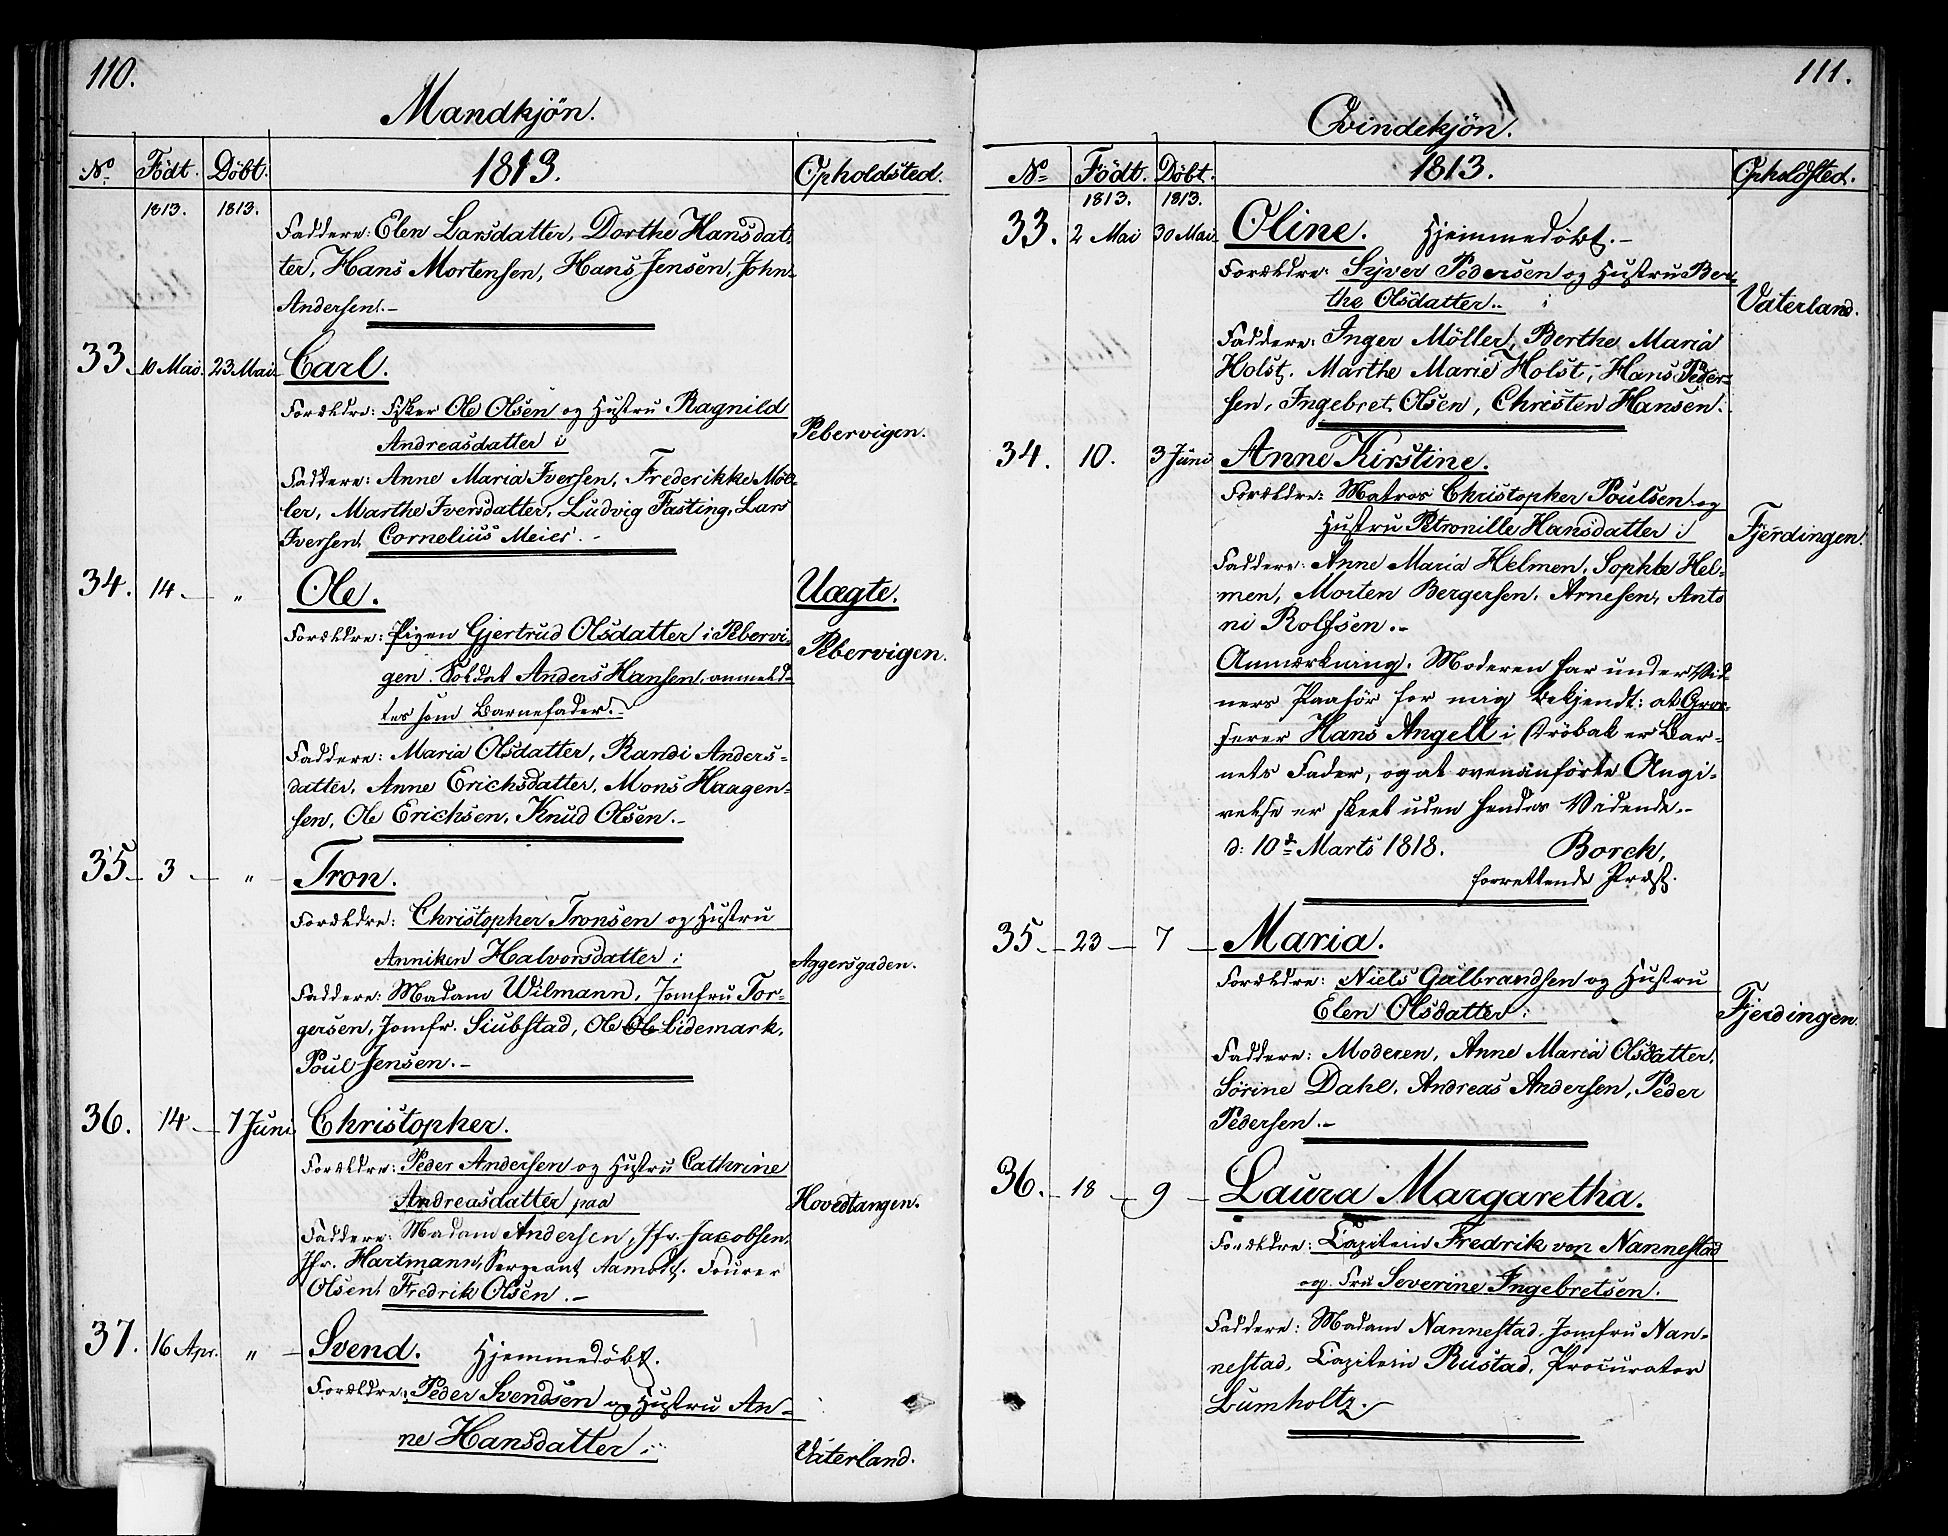 110.
Mandkjön.
No. Födt. Döbt. 1813. Opholdsted.
1813. 1813.
Faddere: Elen Larsdatter, Dorthe Hansdat-
ter, Hans Mortensen, Hans Jensen, John
Andersen.-
33. 10 Mai. 23 Mai Carl.
Forældre: Fisker Ole Olsen og Hustru Ragnild
Andreasdatter i
Pebervigen.
Faddere: Anne Maria Iversen, Frederikke Möl-
ler, Marthe Iversdatter, Ludvig Fasting, Lars
Iversen, Cornelius Meier.-
34. 14 - " Ole. Uægte.
Forældre: Pigen Gjertrud Olsdatter i Pebervi-
gen. Soldat Anders Hansen, anmeld-
tes som Barnefader.-
Pebervigen.
Faddere: Maria Olsdatter, Randi Anders-
datter, Anne Erichsdatter, Mons Haagen-
sen, Ole Erichsen, Knud Olsen.-
35 - 3 - " - Tron.
Forældre: Christopher Tronsen og Hustru
Anniken Halvorsdatter i
Aggersgaden.
Faddere: Madam Wilmann, Jomfru Tor-
gersen, Jomfr. Siubstad, Ole Ole Lidemark,
Poul Jensen.-
36. 14 - 7 Juni Christopher.
Forældre: Peder Andersen og Hustru Cathrine
Andreasdatter paa
Hovedtangen.
Faddere: Madam Andersen, Jfr. Jacobsen,
Jfr. Hartmann, Sergeant Aamodt, Fourer
Olsen, Fredrik Olsen.-
37. 16 Apr. " - Svend. Hjemmedöbt.
Forældre: Peder Svendsen og Hustru An-
ne Hansdatter i
Vaterland.
111.
Qvindekjön.
No Födt. Döbt. 1813. Opholdsted.
1813. 1813.
33. 2 Mai 30 Mai Oline. Hjemmedöbt.-
Forældre: Syver Pedersen og Hustru Ber-
the Olsdatter.. i
Vaterland.
Faddere: Inger Möller, Berthe Maria
Holst, Marthe Marie Holst, Hans Peder-
sen, Ingebret Olsen, Christen Hansen.
34. 10. 3 Juni Anne Kirstine.
Forældre: Matros Christopher Poulsen og
Hustru Petronille Hansdatter i
Fjerdingen.
Faddere: Anne Maria Helmen, Sophie Hel-
men, Morten Bergersen, Arnesen, Anto
ni Rolfsen.-
Anmærkning. Moderen har under Vid-
ners Paahör for mig bekjendt: at Gros-
serer Hans Angell i Dröbak er Bar-
nets Fader, og at ovenanförte Angi-
velse er skeet uden hendes Vidende.-
d: 10d Marts 1818. Borch,
forrettende Præst.
35 - 23 - 7 - Maria.
Forældre: Niels Gulbrandsen og Hustru
Elen Olsdatter i
Fjerdingen.
Faddere: Moderen, Anne Maria Olsdatter,
Sörine Dahl, Andreas Andersen, Peder
Pedersen.-
36. - 18 - 9 - Laura Margaretha.
Forældre: Capitein Fredrik von Nannestad
og Fru Severine Ingebretsen.
Faddere: Madam Nannestad, Jomfru Nan-
nestad, Capitein Rustad, Procurator
Lumholtz.-